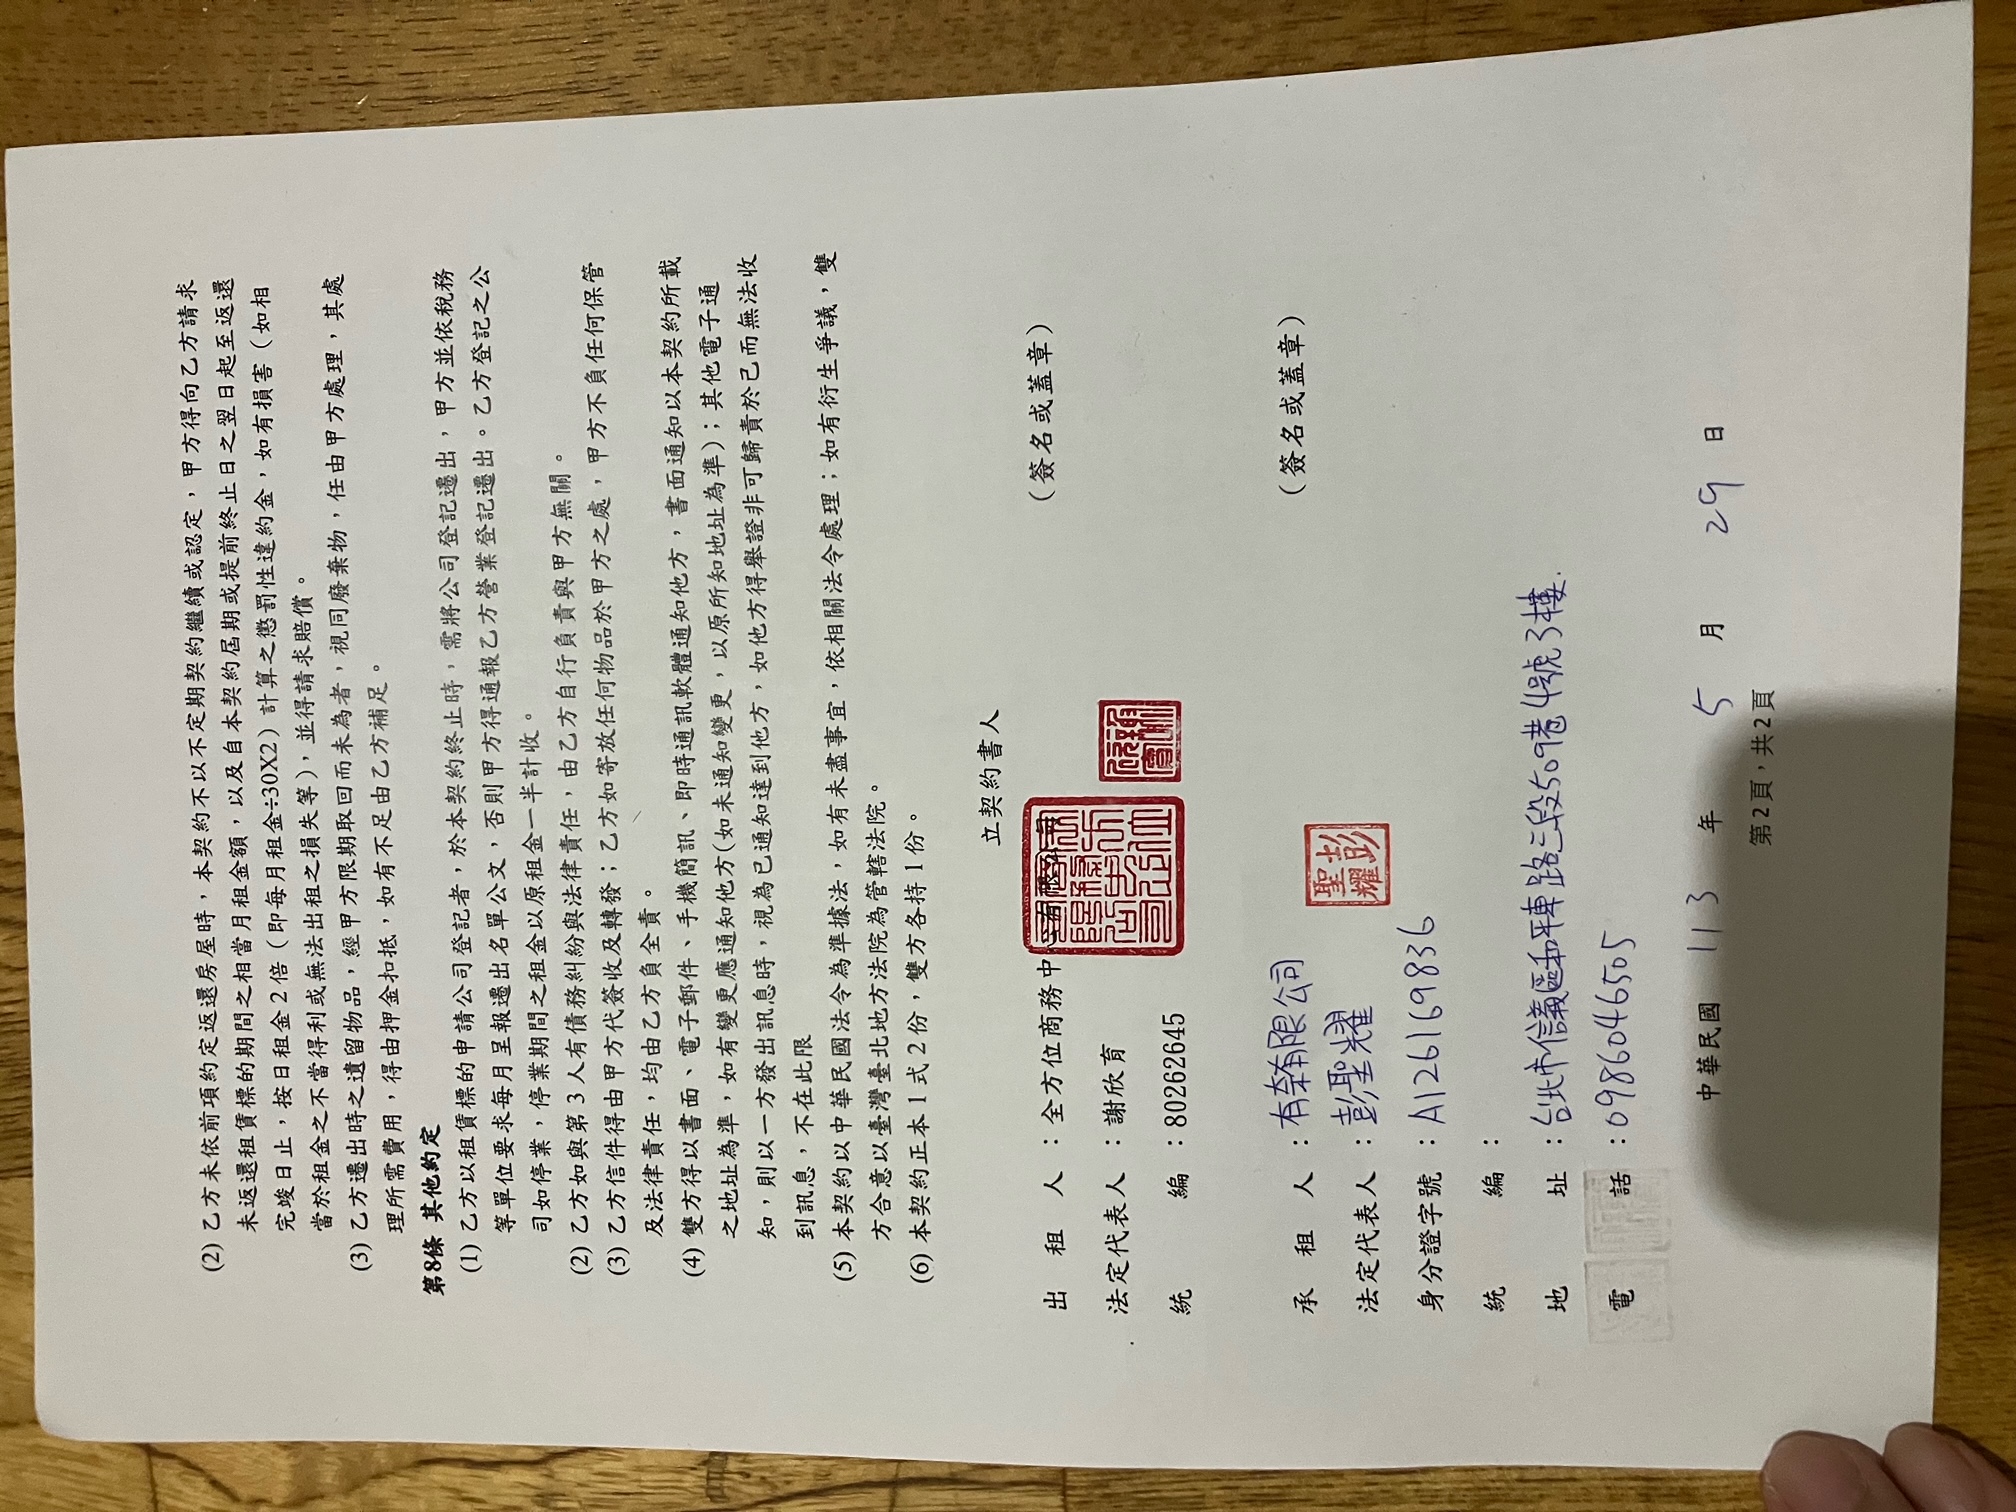 (2) 乙方未依前項約定返還房屋時，本契約不以不定期契約繼續或認定，甲方得向乙方請求
未返還租賃標的期間之相當月租金額，以及自本契約屆期或提前終止日之翌日起至返還
完竣日止，按日租金2倍（即每月租金÷30X2）計算之懲罰性違約金，如有損害（如相
當於租金之不當得利或無法出租之損失等），並得請求賠償。
(3) 乙方遷出時之遺留物品，經甲方限期取回而未為者，視同廢棄物，任由甲方處理，其處
理所需費用，得由押金扣抵，如有不足由乙方補足。
第8條 其他約定
(1) 乙方以租賃標的申請公司登記者，於本契約終止時，需將公司登記遷出，甲方並依稅務
等單位要求每月呈報遷出名單公文，否則甲方得通報乙方營業登記遷出。乙方登記之公
司如停業，停業期間之租金以原租金一半計收。
(2) 乙方如與第3人有債務糾紛與法律責任，由乙方自行負責與甲方無關。
(3) 乙方信件得由甲方代簽收及轉發；乙方如寄放任何物品於甲方之處，甲方不負任何保管
及法律責任，均由乙方負全責。
(4) 雙方得以書面、電子郵件、手機簡訊、即時通訊軟體通知他方，書面通知以本契約所載
之地址為準，如有變更應通知他方(如未通知變更，以原所知地址為準)；其他電子通
知，則以一方發出訊息時，視為已通知達到他方，如他方得舉證非可歸責於己而無法收
到訊息，不在此限
(5) 本契約以中華民國法令為準據法，如有未盡事宜，依相關法令處理；如有衍生爭議，雙
方合意以臺灣臺北地方法院為管轄法院。
(6) 本契約正本1式2份，雙方各持1份。
立契約書人
出租人：全方位商務中心有限公司 （簽名或蓋章）
全方位商務中心有限公司
法定代表人：謝欣育
統編：80262645
承租人：有奈有限公司 （簽名或蓋章）
法定代表人：彭聖耀
彭聖耀
身分證字號：A126169836
統編：
地址：台北市信義區和平東路三段509巷4號3樓.
電話：0986046505
中華民國 113 年 5 月 29 日
第2頁，共2頁